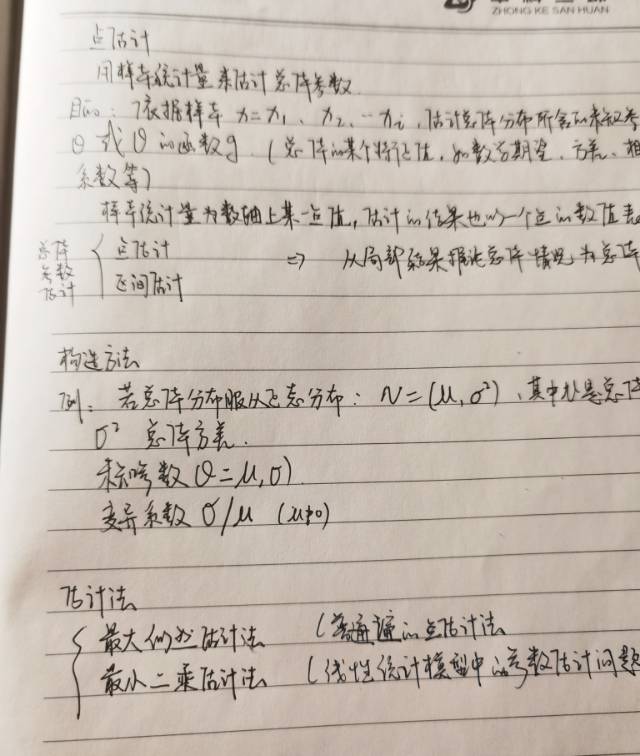 ZHONG KE SAN HUAN
点估计
用样本统计量来估计总体参数
目的：依据样本 x=x₁、x₂、…xᵢ，估计总体分布所含的未知参
θ 或 θ 的函数g.（总体的某个特征值，如数学期望、方差、相
系数等）
样本统计量为数轴上某一点值，估计的结果也以一个点的数值表
总体参数估计 { 点估计 区间估计 ⇒ 从局部结果推论总体情况 为总体
构造方法
例：若总体分布服从正态分布：N=(μ,σ²)、其中μ是总体
σ² 总体方差.
未知参数(θ=μ,σ)
变异系数 σ/μ (μ≠0)
估计法
{ 最大似然估计法 （普通遍的点估计法
最小二乘估计法 （线性统计模型中的参数估计问题